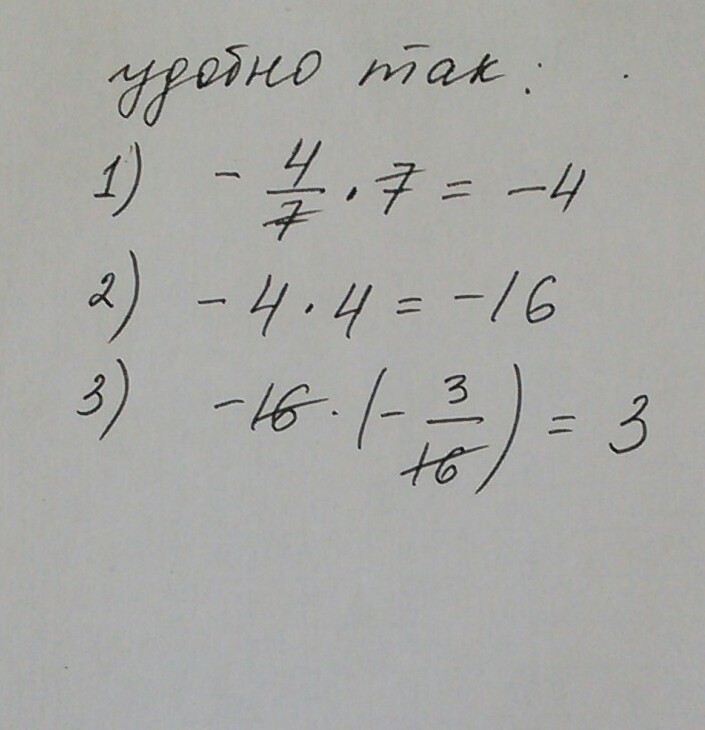 удобно так:
1) - 4/7 · 7 = -4
2) - 4 · 4 = -16
3) -16 · (- 3/16) = 3